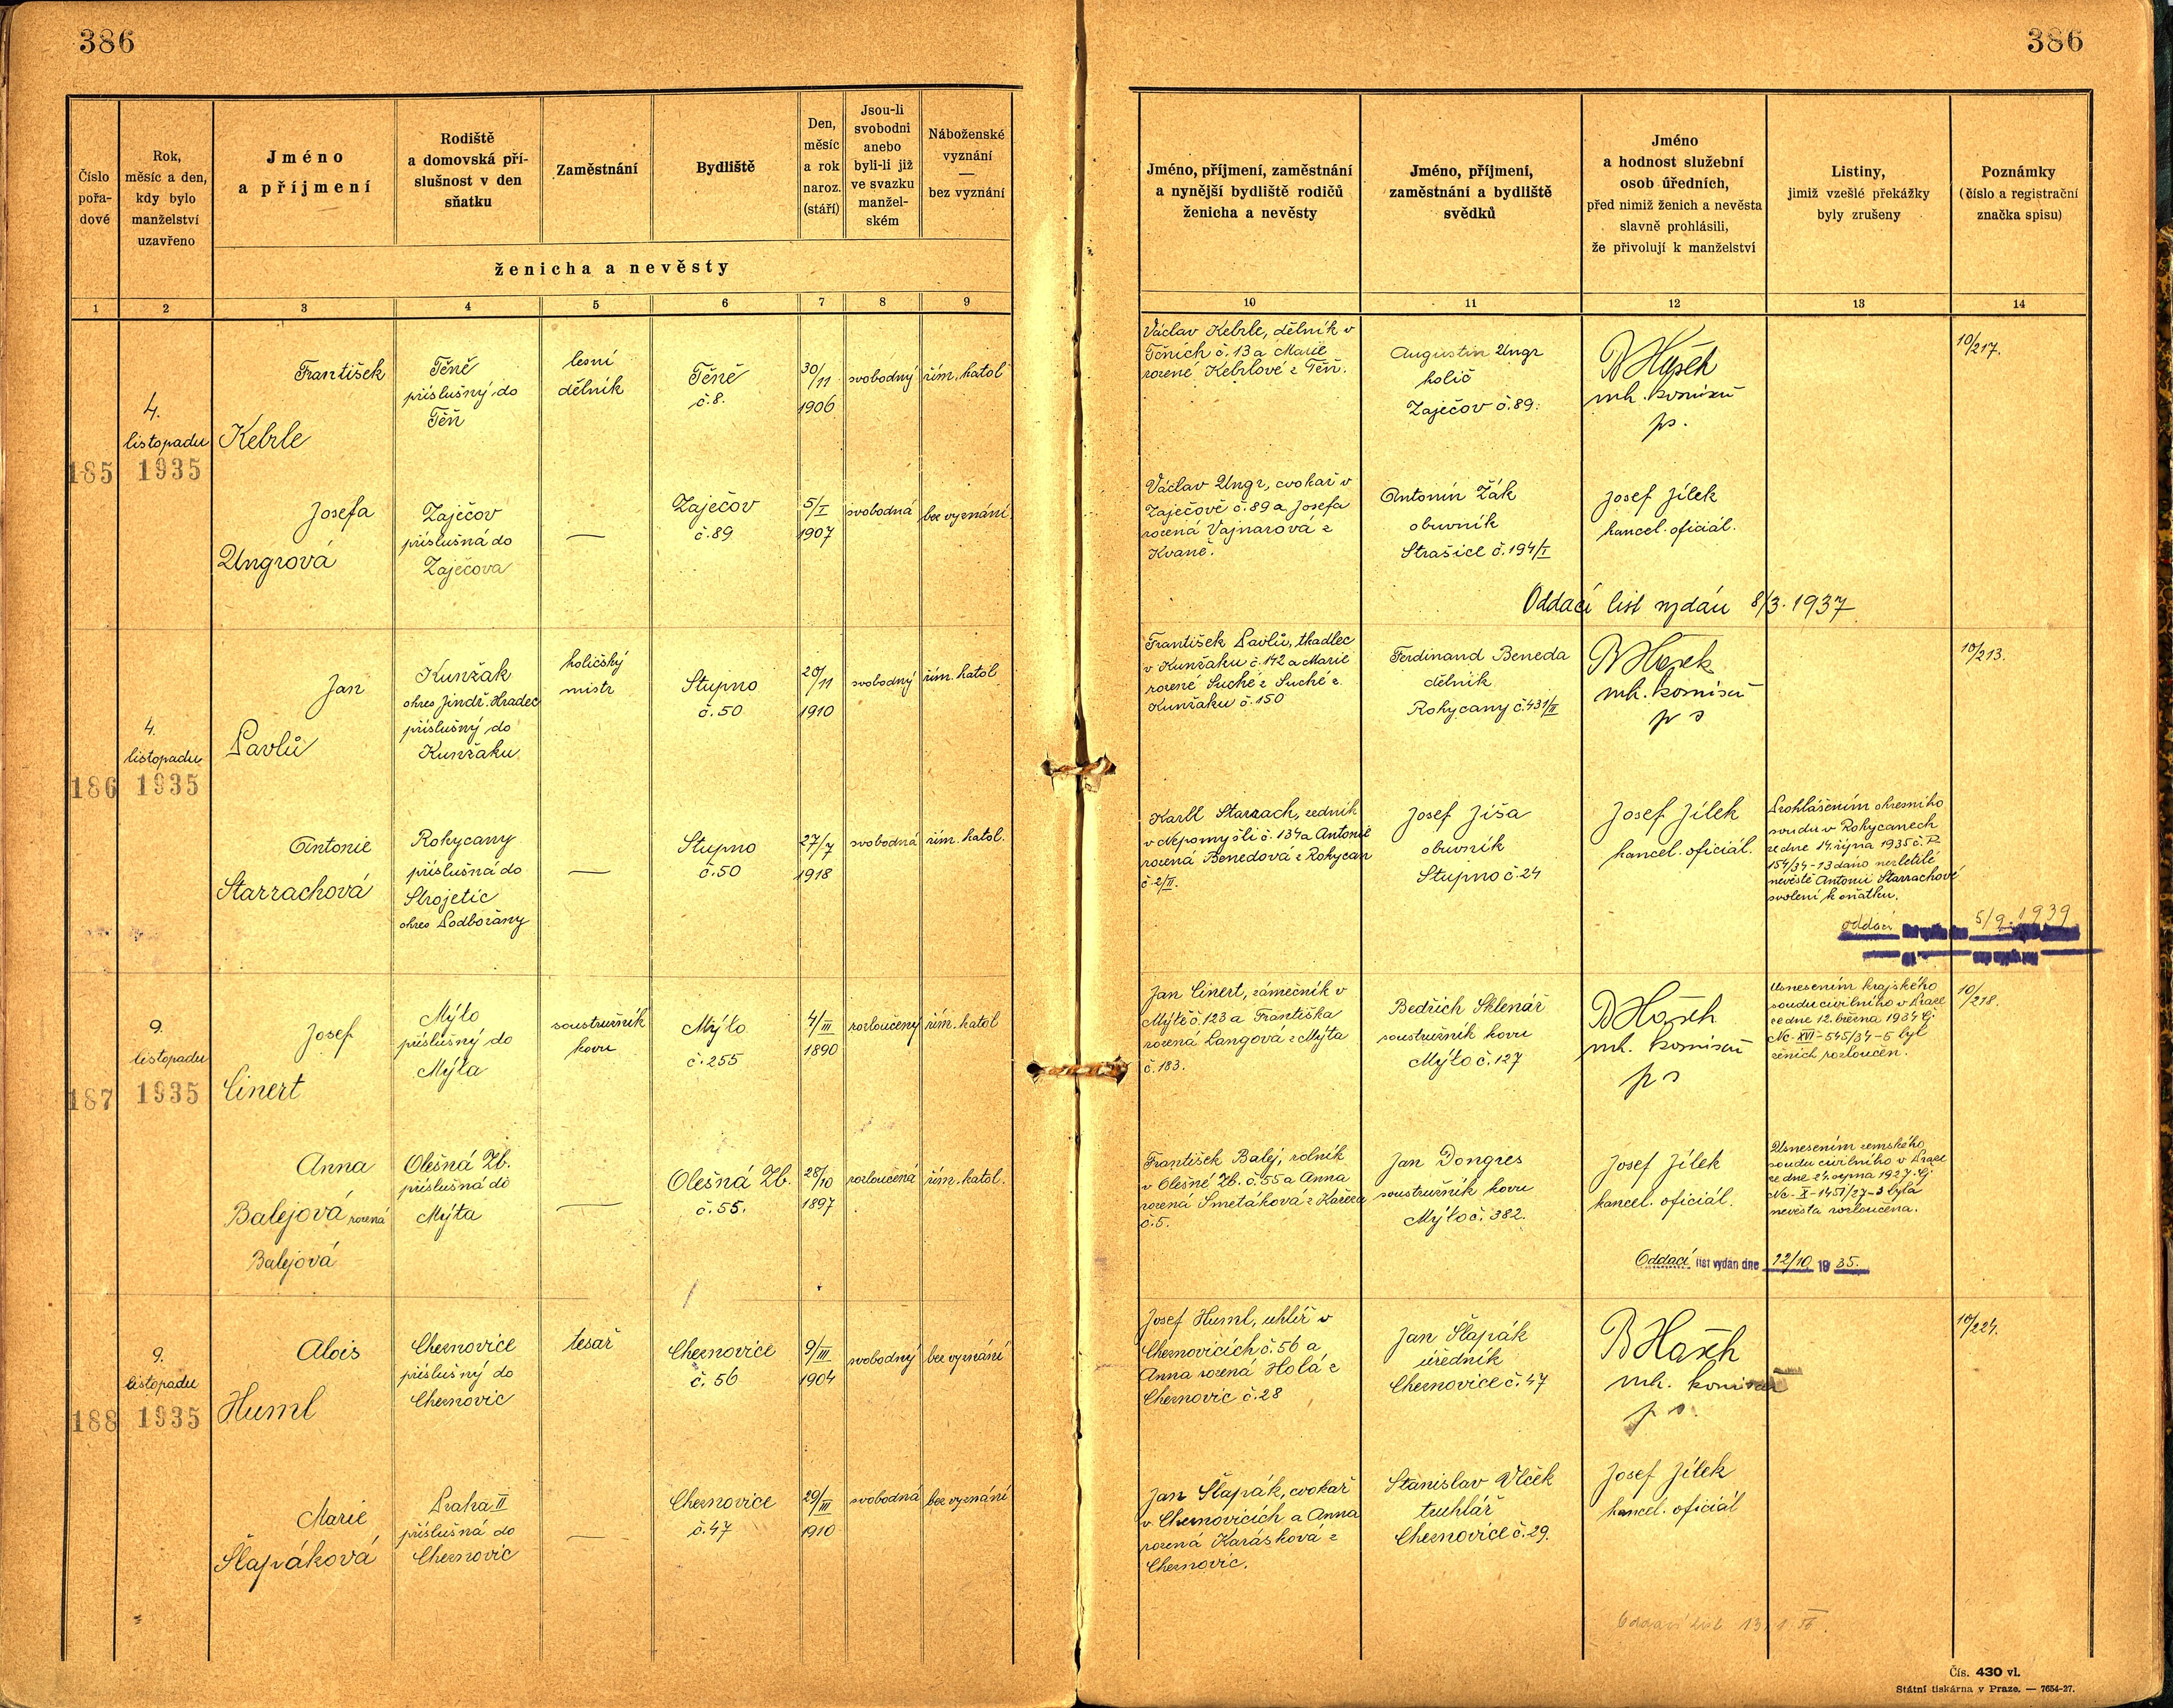 386
386
Číslo pořa- dové
Rok, měsíc a den, kdy bylo manželství uzavřeno
Jméno a příjmení
Rodiště a domovská pří- slušnost v den sňatku
Zaměstnání
Bydliště
Den, měsíc a rok naroz. (stáří)
Jsou-li svobodni anebo byli-li již ve svazku manžel- ském
Náboženské vyznání — bez vyznání
ženicha a nevěsty
Jméno, příjmení, zaměstnání a nynější bydliště rodičů ženicha a nevěsty
Jméno, příjmení, zaměstnání a bydliště svědků
Jméno a hodnost služební osob úředních, před nimiž ženich a nevěsta slavně prohlásili, že přivolují k manželství
Listiny, jimiž vzešlé překážky byly zrušeny
Poznámky (číslo a registrační značka spisu)
1 2 3 4 5 6 7 8 9 10 11 12 13 14
185
4.
listopadu
1935
František
Kebrle
Těně
příslušný do
Těň
lesní
dělník
Těně
č.8.
30/11
1906
svobodný
řím. katol
Václav Kebrle, dělník v
Těních č.13 a Marie
rozené Kebrlové z Těň.
Augustin Ungr
holič
Zaječov č.89.
B Hašek
mk. komisař
ps.
10/217.
Josefa
Ungrová
Zaječov
příslušná do
Zaječova
—
Zaječov
č.89
5/I
1907
svobodná
bez vyznání
Václav Ungr, cvokař v
Zaječově č.89 a Josefa
rozená Vajnarová z
Kvaně.
Antonín Žák
obuvník
Strašice č.194/I
Josef Jílek
kancel. oficiál.
Oddací list vydán 8/3. 1937
186
4.
listopadu
1935
Jan
Pavlů
Kunžak
okres Jindř. Hradec
příslušný do
Kunžaku
holičský
mistr
Stupno
č.50
20/11
1910
svobodný
řím. katol
František Pavlů, tkadlec
v Kunžaku č.142 a Marie
rozené Suché z Suché z
Kunžaku č.150
Ferdinand Beneda
dělník
Rokycany č.431/II
B Hašek
mk. komisař
ps
10/213.
Antonie
Starrachová
Rokycany
příslušná do
Strojetic
okres Podbořany
—
Stupno
č.50
27/7
1918
svobodná
řím. katol.
Karel Starrach, zedník
v Nepomyšli č.134 a Antonie
rozená Benedová z Rokycan
č.2/II.
Josef Jíša
obuvník
Stupno č.24
Josef Jílek
kancel. oficiál.
Prohlášením okresního
soudu v Rokycanech
ze dne 14. října 1935 č. P
154/34-13 dáno nezletilé
nevěstě Antonii Starrachové
svolení k sňatku.
oddací 5/9. 1939
187
9.
listopadu
1935
Josef
Cinert
Mýto
příslušný do
Mýta
soustružník
kovu
Mýto
č.255
4/III
1890
rozloučený
řím. katol
Jan Cinert, zámečník v
Mýtě č.123 a Františka
rozená Langová z Mýta
č.183.
Bedřich Sklenář
soustružník kovu
Mýto č.127
B Hašek
mk. komisař
ps
Usnesením krajského
soudu civilního v Praze
ze dne 12. března 1934 čj
Nc-XVI-545/34-5 byl
ženich rozloučen.
10/218.
Anna
Balejová rozená
Balejová
Olešná Zb.
příslušná do
Mýta
—
Olešná Zb.
č.55.
28/10
1897
rozloučená
řím. katol.
František Balej, rolník
v Olešné Zb. č.55 a Anna
rozená Smetáková z Kařeza
č.5.
Jan Dongres
soustružník kovu
Mýto č. 382.
Josef Jílek
kancel. oficiál.
Usnesením zemského
soudu civilního v Praze
ze dne 24. srpna 1927 čj
Nc-X-1451/27-3 byla
nevěsta rozloučena.
Oddací list vydán dne 12/10 1935.
188
9.
listopadu
1935
Alois
Huml
Cheznovice
příslušný do
Cheznovic
tesař
Cheznovice
č. 56
9/III
1904
svobodný
bez vyznání
Josef Huml, uhlíř v
Cheznovicích č.56 a
Anna rozená Holá z
Cheznovic č.28
Jan Šlapák
úředník
Cheznovice č.47
B Hašek
mk. komisař
ps.
10/224.
Marie
Šlapáková
Praha II
příslušná do
Cheznovic
—
Cheznovice
č.47
29/III
1910
svobodná
bez vyznání
Jan Šlapák, cvokař
v Cheznovicích a Anna
rozená Karásková z
Cheznovic.
Stanislav Vlček
truhlář
Cheznovice č.29.
Josef Jílek
kancel. oficiál
Oddací list
Čís. 430 vl.
Státní tiskárna v Praze. — 7654-27.